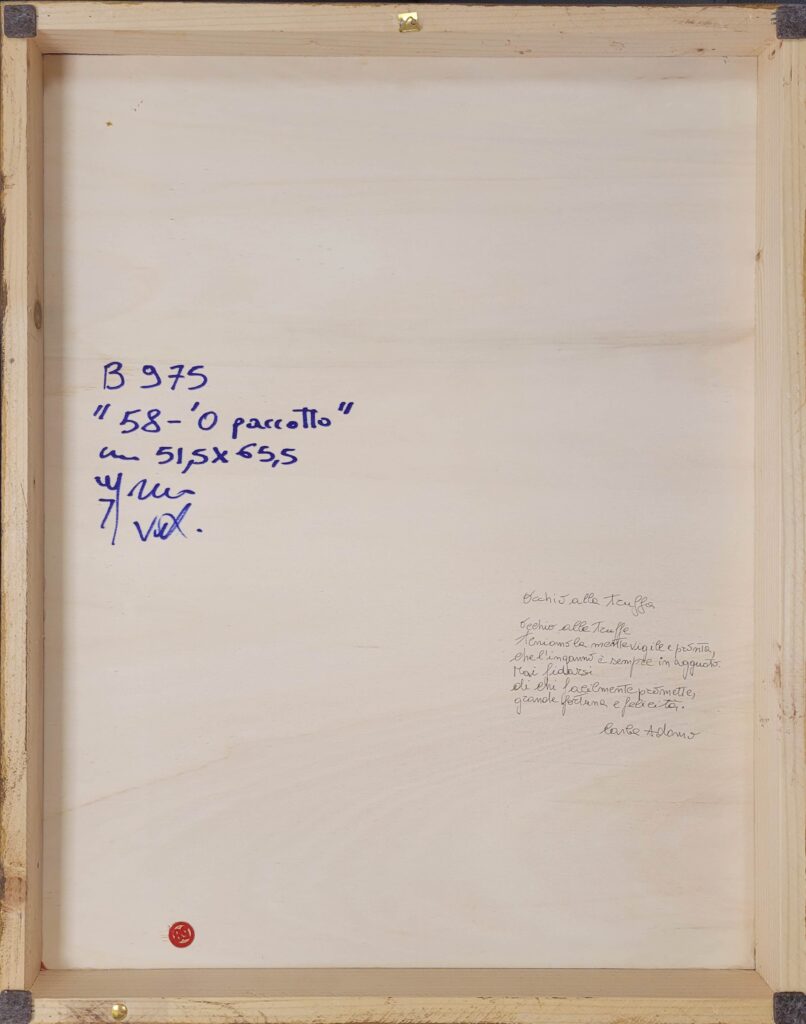 B 975
"58-'O paccotto"
cm 51,5x65,5
Occhio alla truffa
Occhio alle truffe
teniamo la mente vigile e pronta,
che l'inganno è sempre in agguato.
Mai fidarsi
di chi facilmente promette,
grande fortuna e felicità.
Carla Adamo